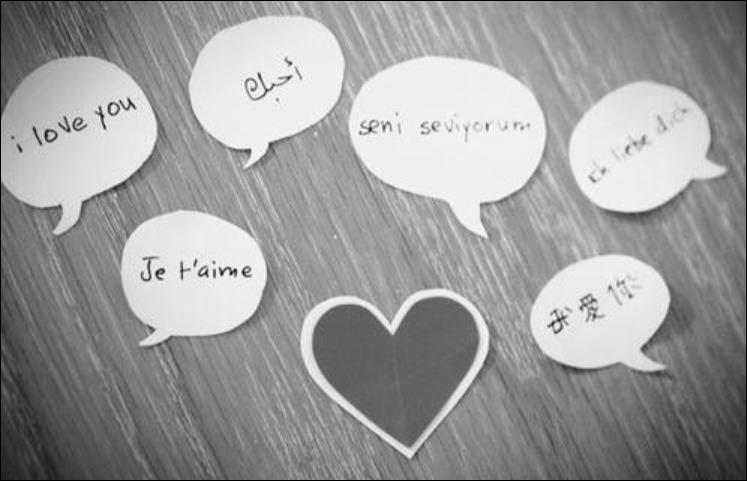 i love you
أحبك
seni seviyorum
ich liebe dich
Je t'aime
我愛你